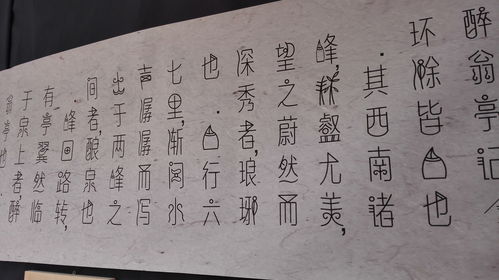 醉翁亭记
环滁皆山也
·其西南诸
峰,林壑尤美,
望之蔚然而
深秀者,琅琊
也·山行六
七里,渐闻水
声潺潺而泻
出于两峰之
间者,酿泉也
·峰回路转,
有亭翼然临
于泉上者,醉
翁亭也